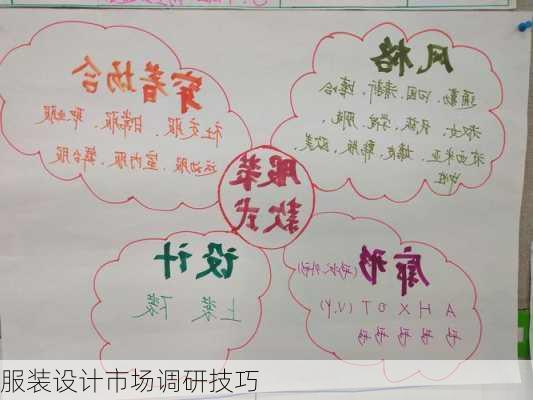 风格
通勤、田园、清新、
淑女、民族、学院、朋克、
波西米亚、嬉皮、韩版、欧美
中性
穿着场合
社交服、日常服、职业服
运动服、室内服、舞台服
服装
款式
设计
上装 下装
廓形
A H X O T (V,Y)
形 形 形 形
服装设计市场调研技巧